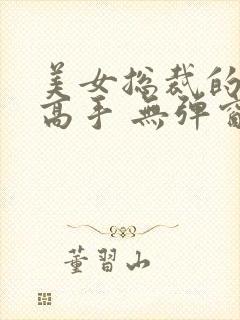 美女总裁的
高手 無弹窗
董習山